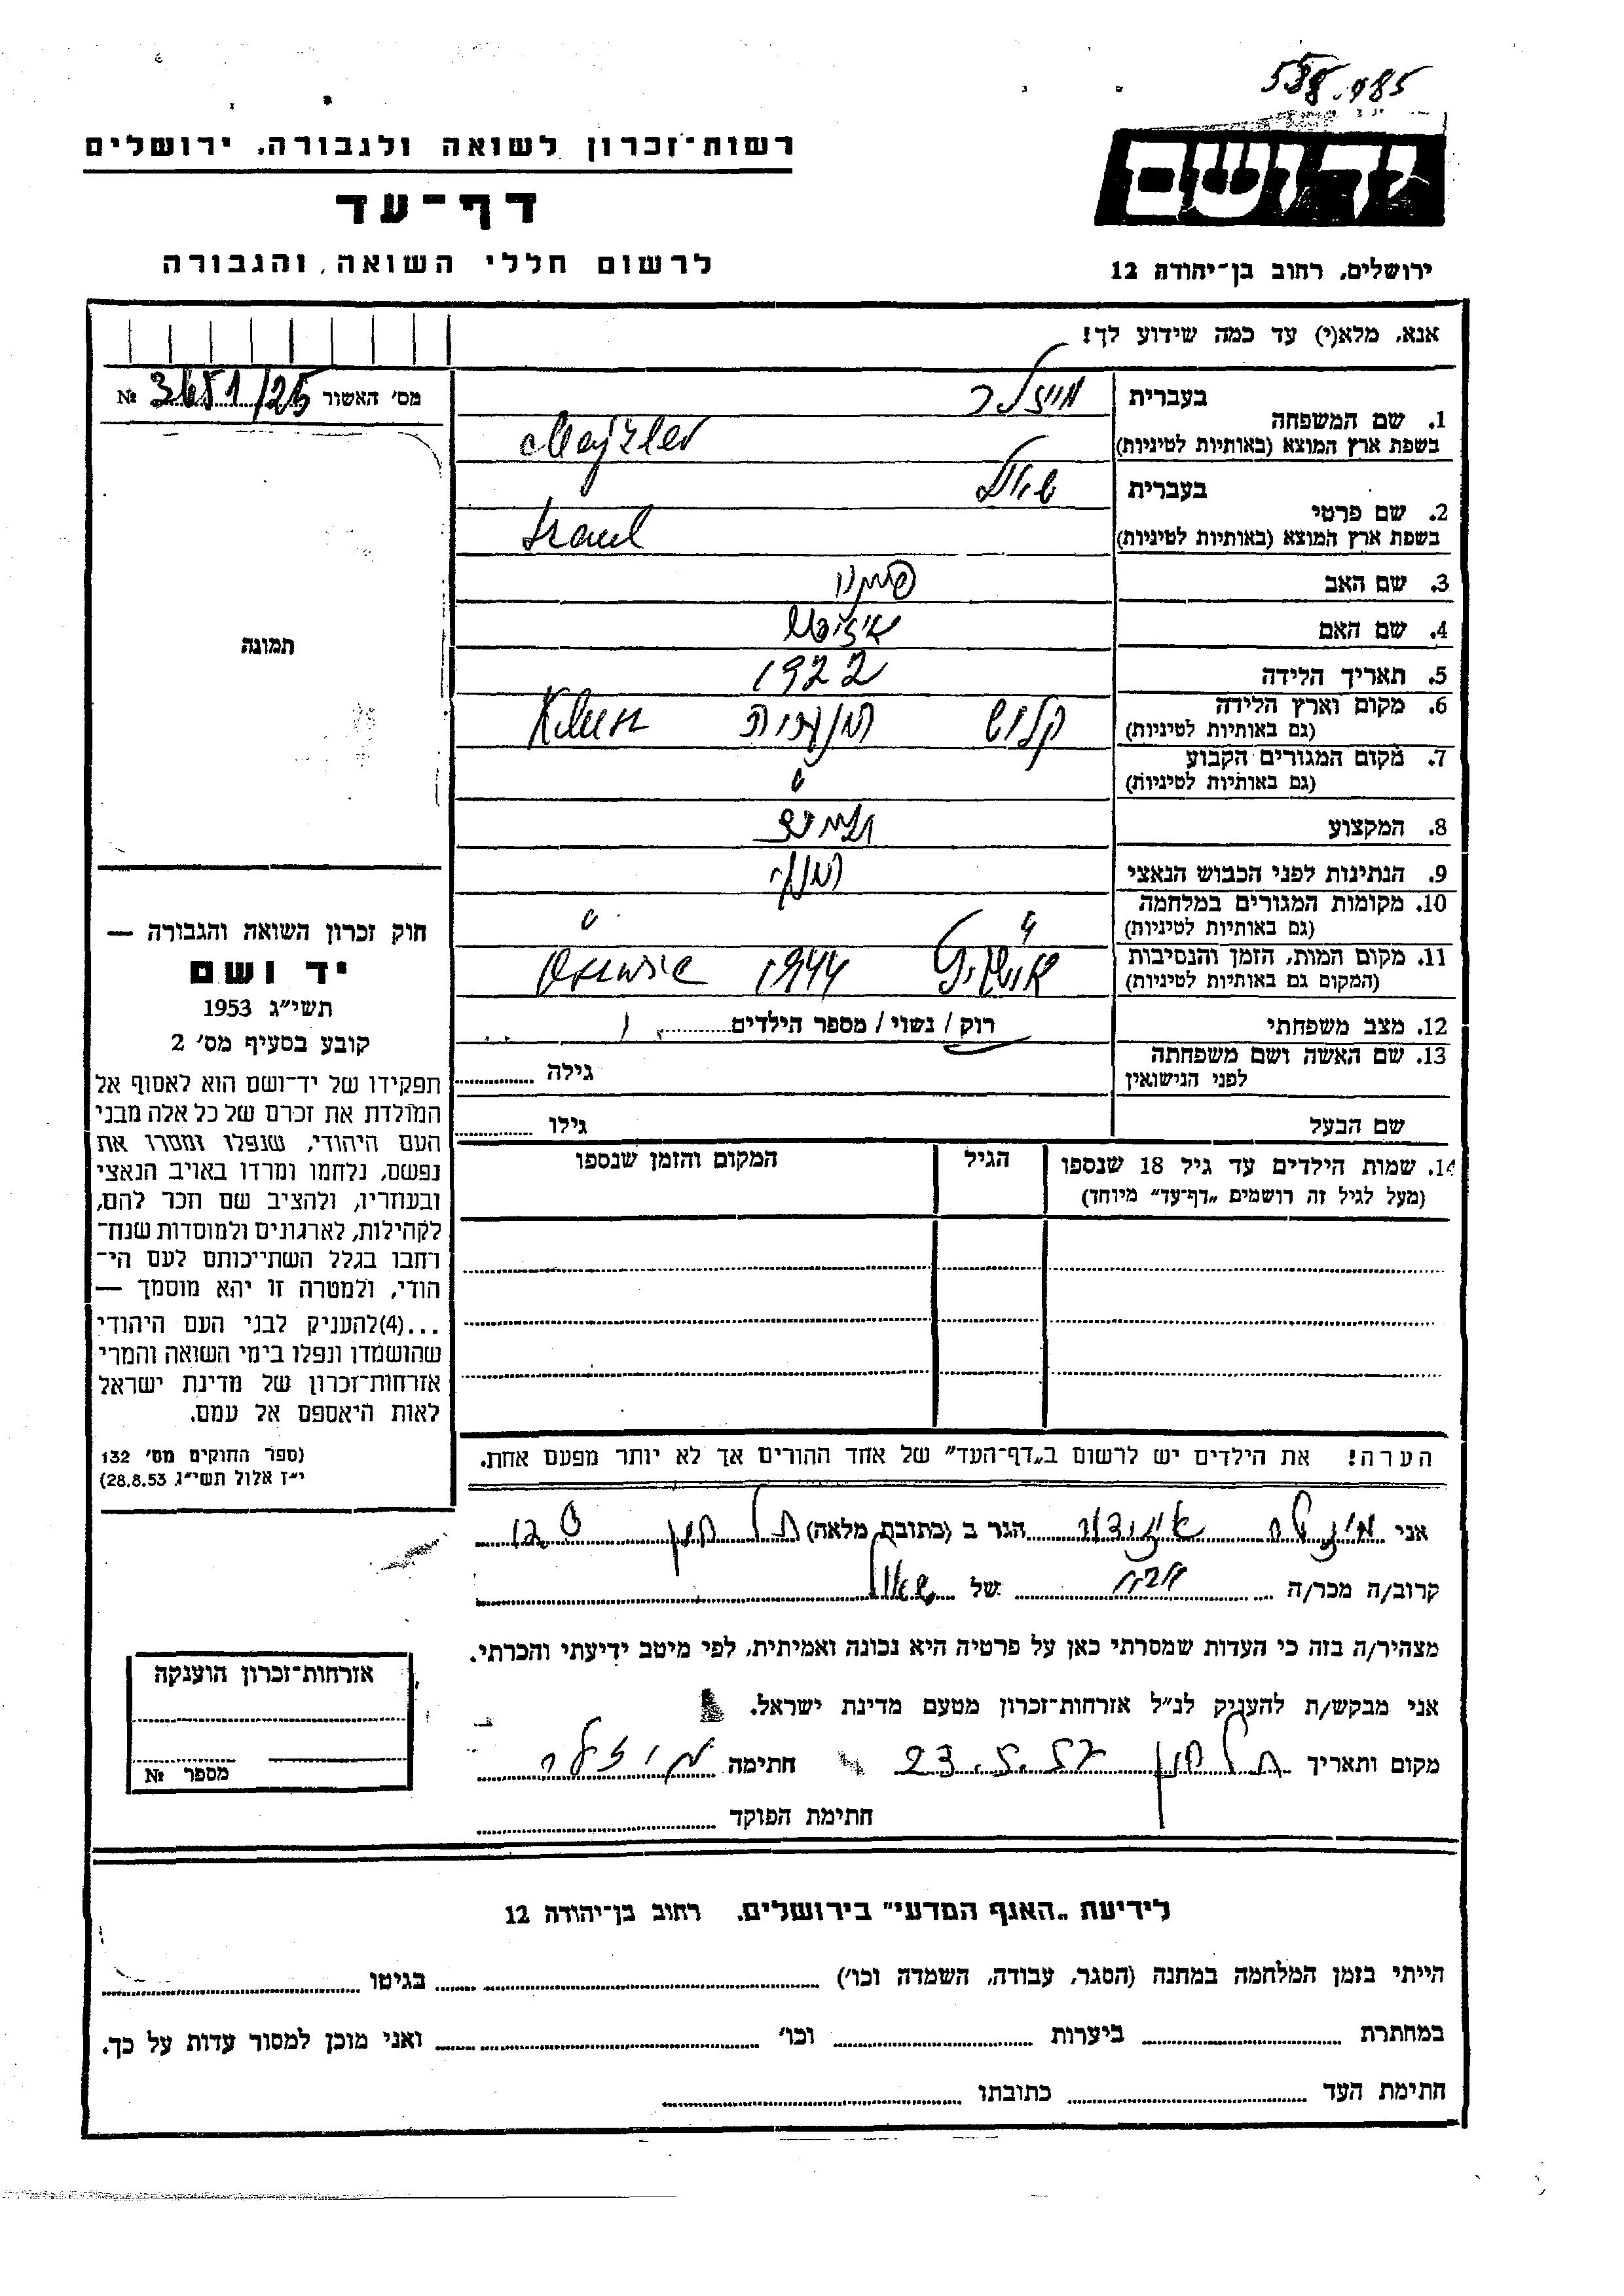 558.985
רשות־זכרון לשואה ולגבורה, ירושלים
יד ושם
דף־עד
לרשום חללי השואה והגבורה
ירושלים, רחוב בן־יהודה 12
אנא, מלא(י) עד כמה שידוע לך!
מס׳ האשור № 3651/25
בעברית
1. שם המשפחה
בשפת ארץ המוצא (באותיות לטיניות) Majzler
בעברית
2. שם פרטי
בשפת ארץ המוצא (באותיות לטיניות)
3. שם האב
4. שם האם
תמונה
5. תאריך הלידה 1922
6. מקום וארץ הלידה
(גם באותיות לטיניות)
7. מקום המגורים הקבוע
(גם באותיות לטיניות)
8. המקצוע
9. הנתינות לפני הכבוש הנאצי
10. מקומות המגורים במלחמה
(גם באותיות לטיניות)
11. מקום המות, הזמן והנסיבות 1944
(המקום גם באותיות לטיניות)
12. מצב משפחתי רוק / נשוי / מספר הילדים
13. שם האשה ושם משפחתה
לפני הנישואין גילה
שם הבעל גילו
14. שמות הילדים עד גיל 18 שנספו הגיל המקום והזמן שנספו
(מעל לגיל זה רושמים „דף־עד״ מיוחד)
הערה! את הילדים יש לרשום ב„דף־העד״ של אחד ההורים אך לא יותר מפעם אחת.
חוק זכרון השואה והגבורה —
יד ושם
תשי״ג 1953
קובע בסעיף מס׳ 2
תפקידו של יד־ושם הוא לאסוף אל
המולדת את זכרם של כל אלה מבני
העם היהודי, שנפלו ומסרו את
נפשם, נלחמו ומרדו באויב הנאצי
ובעוזריו, ולהציב שם וזכר להם,
לקהילות, לארגונים ולמוסדות שנח־
רחבו בגלל השתייכותם לעם הי־
הודי, ולמטרה זו יהא מוסמך —
...(4)להעניק לבני העם היהודי
שהושמדו ונפלו בימי השואה והמרי
אזרחות־זכרון של מדינת ישראל
לאות היאספם אל עמם.
(ספר החוקים מס׳ 132
י״ז אלול תשי״ג 28.8.53)
אני הגר ב (כתובת מלאה)
קרוב/ה מכר/ה של שאול
מצהיר/ה בזה כי העדות שמסרתי כאן על פרטיה היא נכונה ואמיתית, לפי מיטב ידיעתי והכרתי.
אני מבקש/ת להעניק לנ״ל אזרחות־זכרון מטעם מדינת ישראל.
מקום ותאריך 23.5.57 חתימה
חתימת הפוקד
אזרחות־זכרון הוענקה
מספר №
לידיעת „האגף המדעי״ בירושלים, רחוב בן־יהודה 12
הייתי בזמן המלחמה במחנה (הסגר, עבודה, השמדה וכו׳) בגיטו
במחתרת ביערות וכו׳ ואני מוכן למסור עדות על כך.
חתימת העד כתובתו